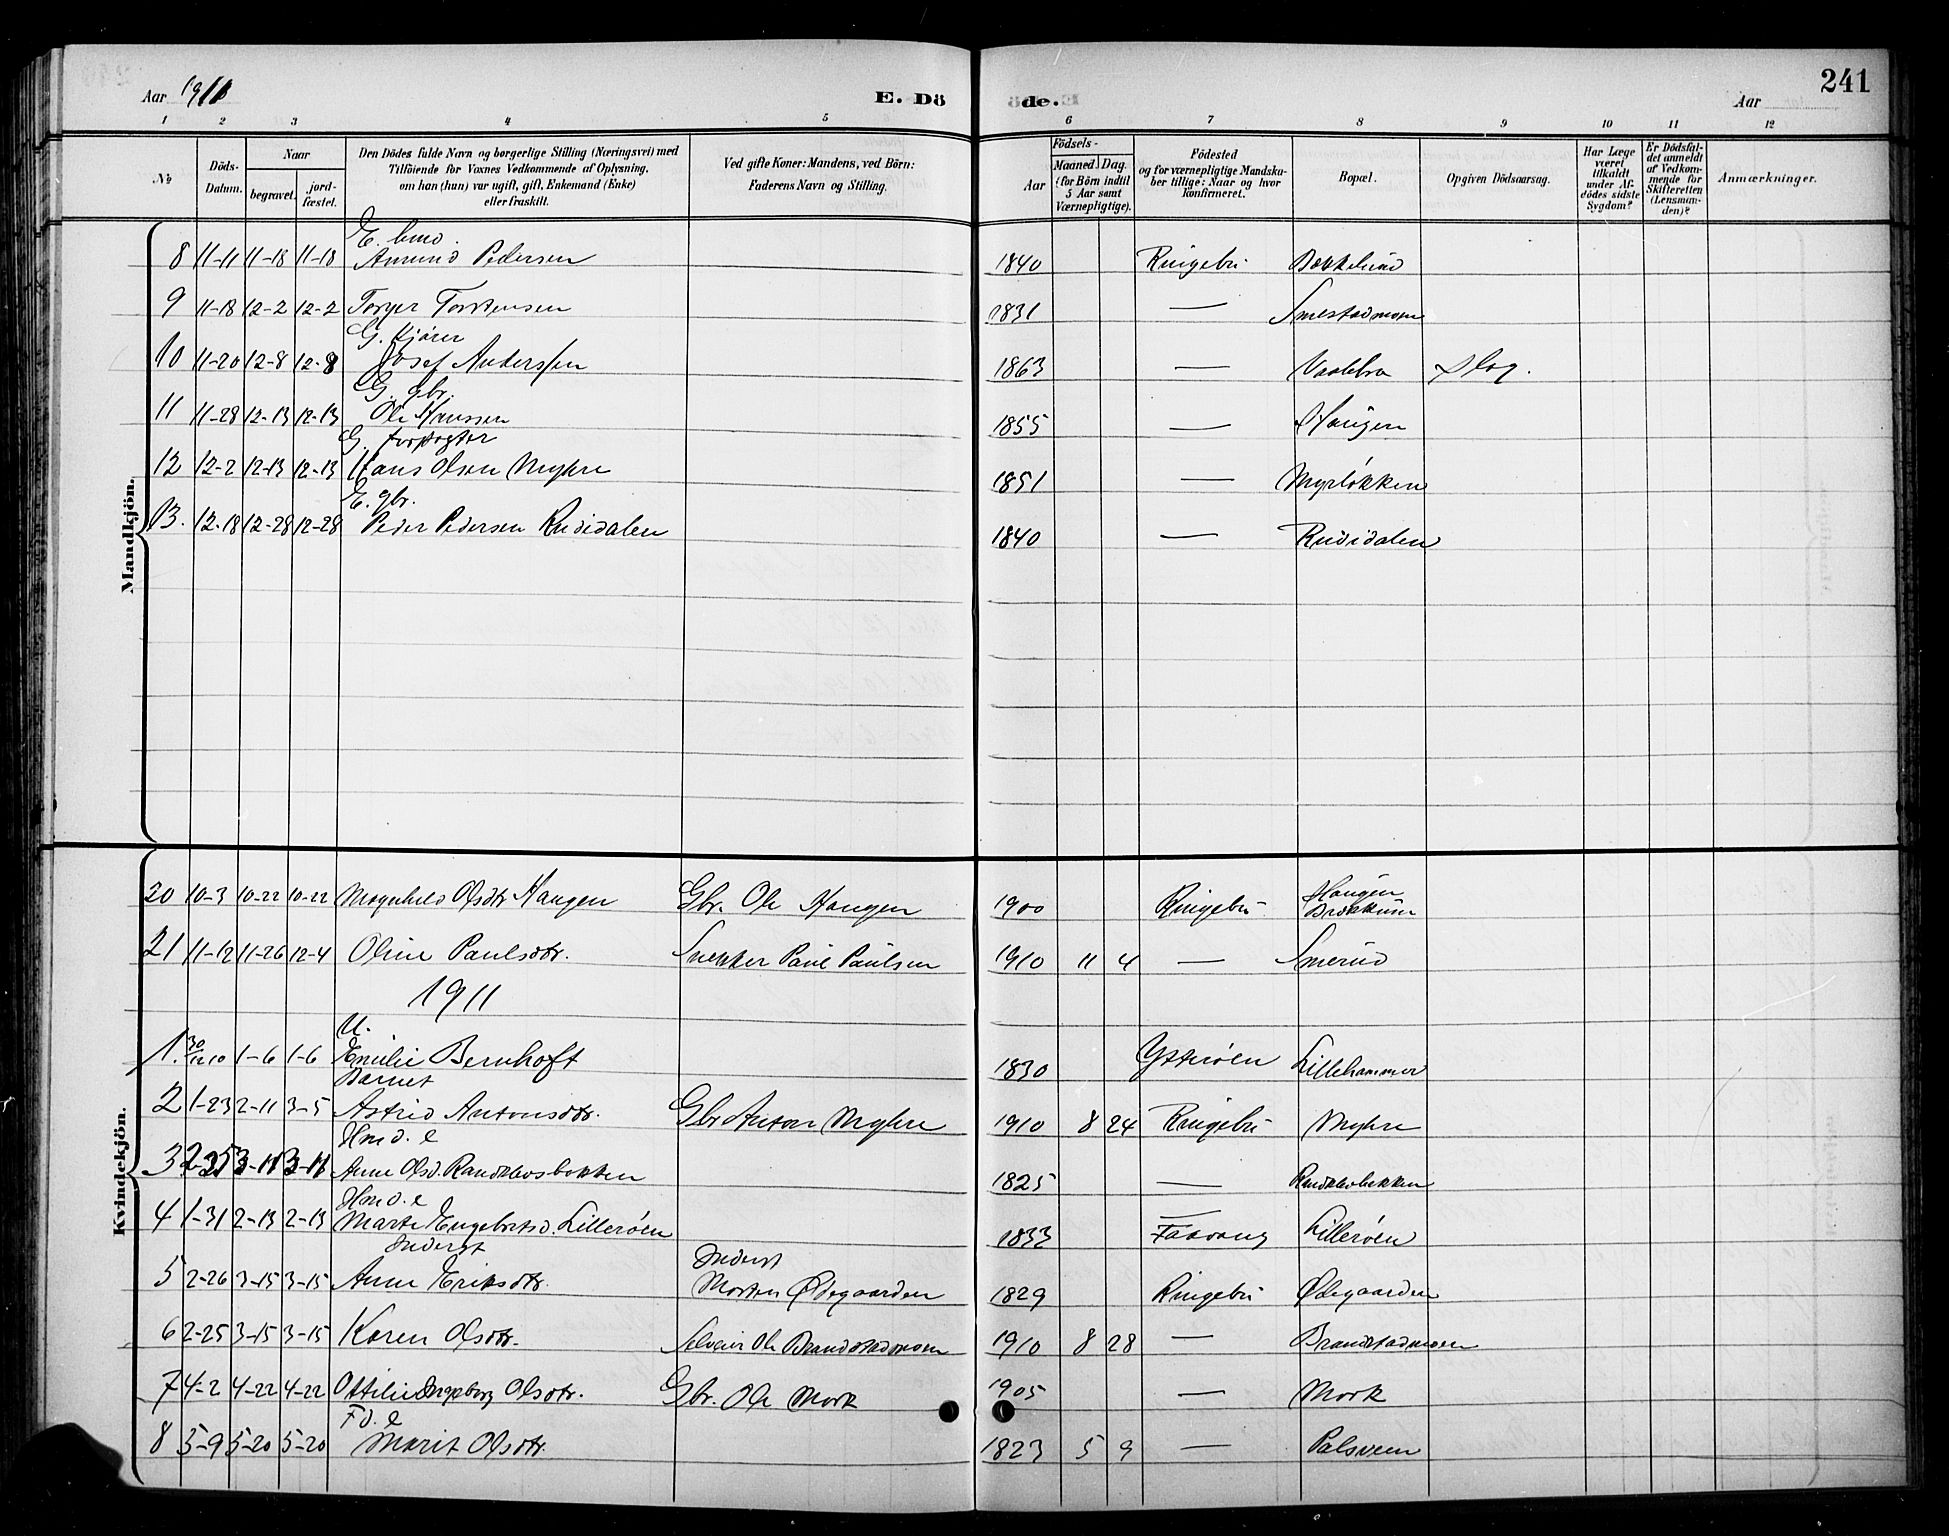 Aar 1911 E. Dö de. Aar 241
1 2 3 4 5 6 7 8 9 10 11 12
№ Döds-Datum. Naar begravet. jordfæstet. Den Dödes fulde Navn og borgerlige Stilling (Næringsvei) med Tilföiende for Voxnes Vedkommende af Oplysning, om han (hun) var ugift, gift, Enkemand (Enke) eller fraskilt. Ved gifte Koner: Mandens, ved Börn: Faderens Navn og Stilling. Aar Födsels- Maaned. Dag. (for Börn indtil 5 Aar samt Værnepligtige). Födested og for værnepligtige Mandskaber tillige: Naar og hvor konfirmeret. Bopæl. Opgiven Dödsaarsag. Har Læge været tilkaldt under Afdödes sidste Sygdom? Er Dödsfaldet anmeldt af Vedkommende for Skifteretten (Lensmanden)? Anmærkninger.
Mandkjön.
E.
8 11-11 11-18 11-18 Amund Pedersen 1840 Ringebu Bækkelund
9 11-18 12-2 12-2 Torger Torstensen 1831 — Smestadmoen
G.
10 11-20 12-8 12-8 Josef Anderssen 1863 — Vaalebro Slag.
G. gbr.
11 11-28 12-13 12-13 Ole Hanssen 1855 — Haugen
G. forpagter
12 12-2 12-13 12-13 Hans Olsen Myhre 1851 — Myrløkken
E. gbr.
13. 12-18 12-28 12-28 Peder Pedersen Rudidalen 1840 — Rudidalen
Kvindekjön.
20 10-3 10-22 10-22 Magnhild Olsdtr Haugen Gbr. Ole Haugen 1900 Ringebu Haugen Brækkum
21 11-12 11-26 12-4 Oline Paulsdtr. Snekker Paul Paulsen 1910 11 4 — Smerud
1911
U.
1. 30/12 10 1-6 1-6 Emilie Bernhoft 1830 Ytterøen Lillehammer
Barnet
2 1-23 2-11 3-5 Astrid Antonsdtr. Gbr Anton Myhre 1910 8 24 Ringebu Myhre
Hmd. e
3 2-25 3-11 3-11 Anne Olsd. Randklevsbakken 1825 — Randklevbakken
Hmd. e
4 1-31 2-13 2-13 Marte Engebretsd. Lillerøen 1833 Faavang Lillerøen
Inderst Inderst
5 2-26 3-15 3-15 Anne Eriksdtr. Morten Ødegaarden 1829 Ringebu Ødegaarden
6 2-25 3-15 3-15 Karen Olsdtr. Selveier Ole Brandstadmoen 1910 8 28 — Brandstadmoen
7 4-2 4-22 4-22 Ottilie Ingeborg Olsdtr. Gbr. Ole Mork 1905 — Mork
Fd. e
8 5-9 5-20 5-20 Marit Olsdtr. 1823 5 9 — Palsveen